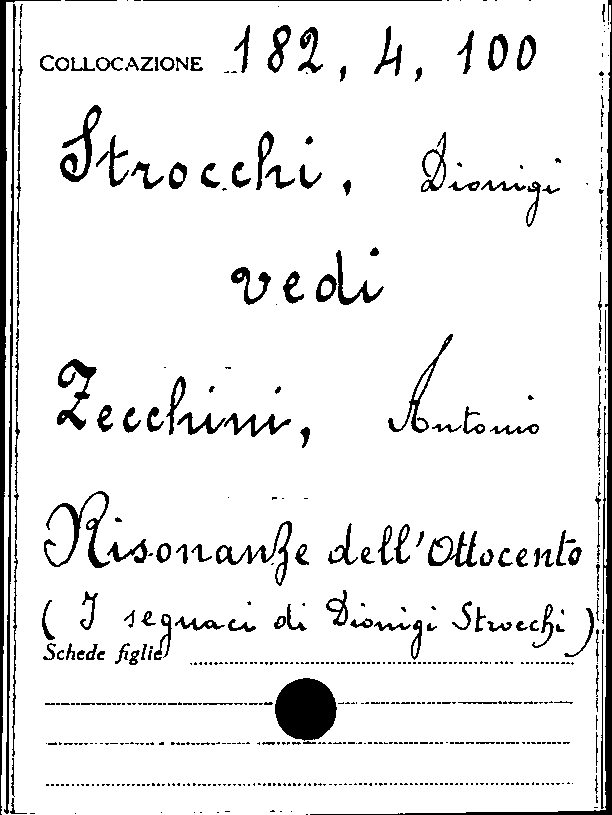 COLLOCAZIONE 182, 4, 100
Strocchi, Dionigi
vedi
Zecchini, Antonio
Risonanze dell'Ottocento
(I seguaci di Dionigi Strocchi)
Schede figlie